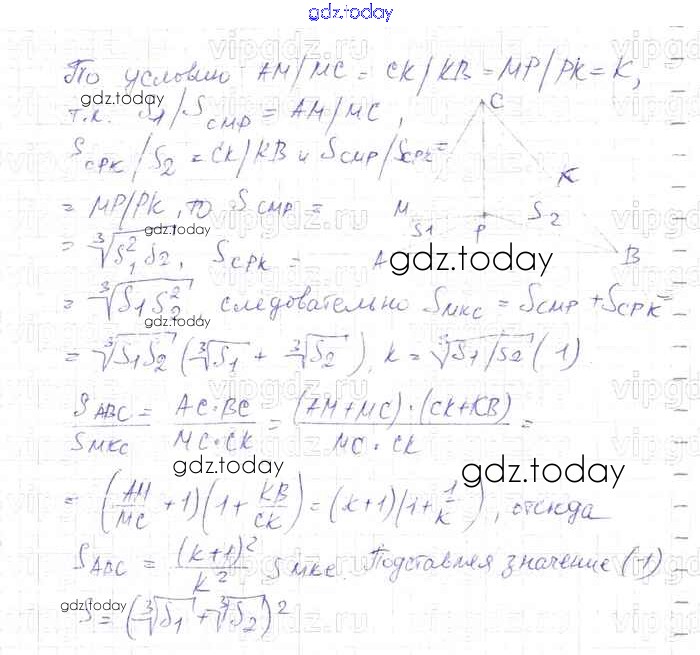 gdz.today
По условию AM/MC = CK/KB = MP/PK = K,
т.к. S1/S_CMP = AM/MC,
S_CPK/S2 = CK/KB и S_CMP/S_CPK =
= MP/PK, то S_CMP =
= ∛(S1²S2), S_CPK =
= ∛(S1S2²), следовательно S_MKC = S_CMP + S_CPK =
= ∛(S1S2) (∛S1 + ∛S2), k = ∛(S1/S2) (1)
S_ABC/S_MKC = AC·BC/MC·CK = (AM+MC)·(CK+KB)/MC·CK =
= (AM/MC + 1)(1 + KB/CK) = (k+1)(1+1/k), отсюда
S_ABC = (k+1)²/k² S_MKC. Подставляя значение (1)
S = (∛S1 + ∛S2)²
C
K
M
S1
P
S2
A
B
gdz.today
gdz.today
gdz.today
gdz.today
gdz.today
gdz.today
gdz.today
vipgdz.ru